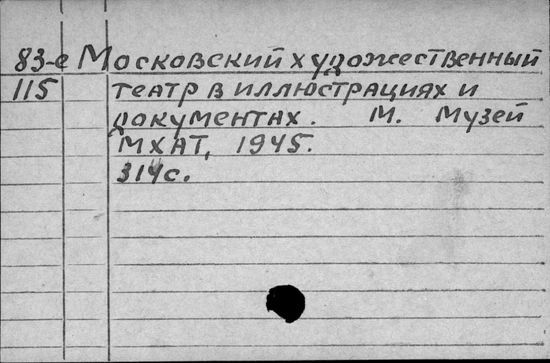 83-е Московский художественный
115 театр в иллюстрациях и
документах. М. Музей
МХАТ, 1945.
314с.